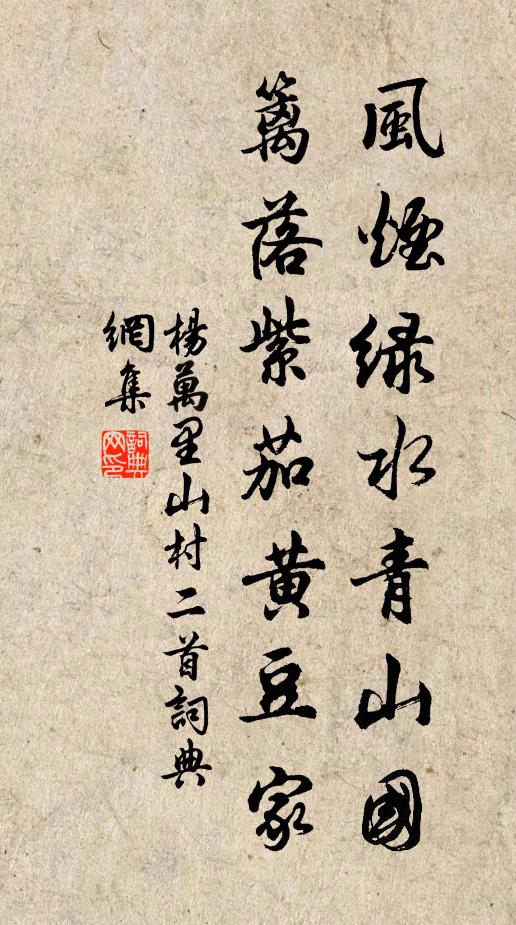 風煙緑水青山國
籬落紫茄黄豆家
楊萬里山村二首詞典
網集
詞典網印